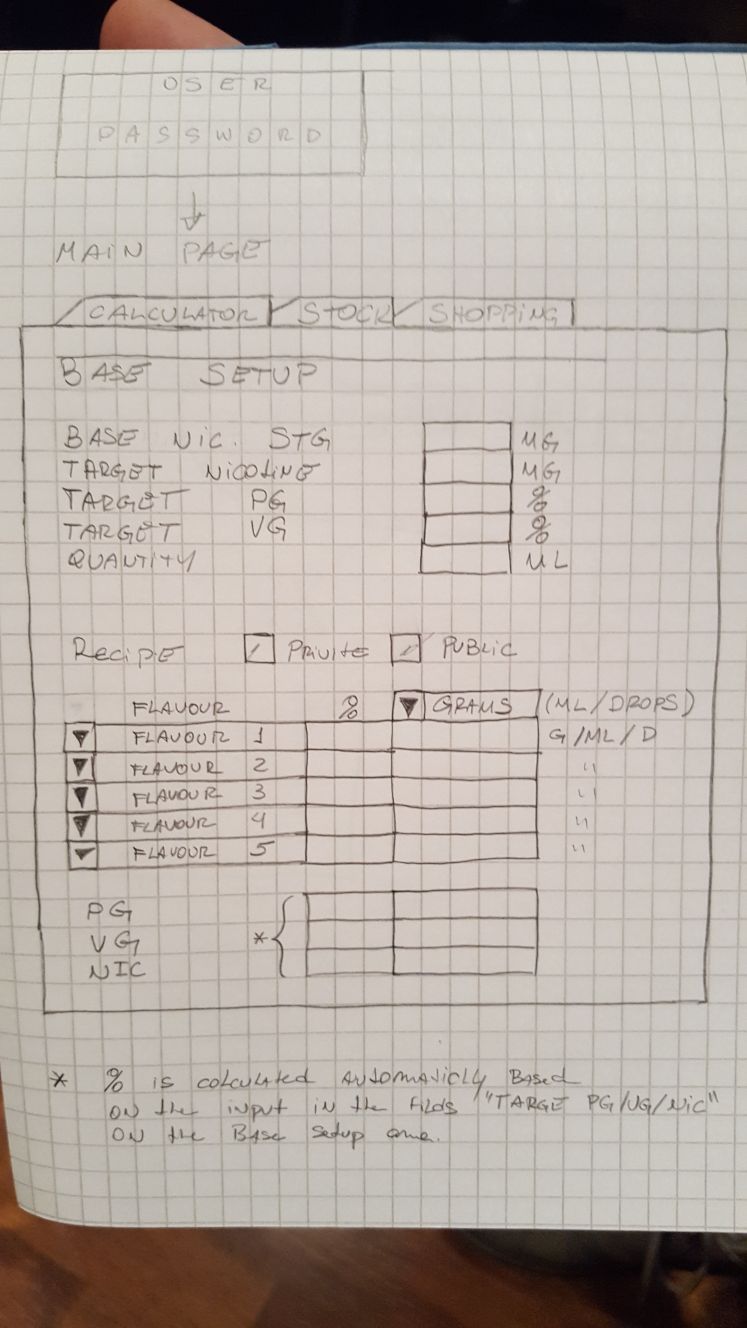 USER
PASSWORD
MAIN PAGE
CALCULATOR STOCK SHOPPING
BASE SETUP
BASE NIC. STG MG
TARGET NICOTINE MG
TARGET PG %
TARGET VG %
QUANTITY ML
Recipe Privite PUBLIC
FLAVOUR % GRAMS (ML/DROPS)
FLAVOUR 1 G/ML/D
FLAVOUR 2 "
FLAVOUR 3 "
FLAVOUR 4 "
FLAVOUR 5 "
PG
VG *
NIC
* % is calculated Automaticly Based
ON the input in the filds "TARGE PG/VG/Nic"
ON the Base Setup